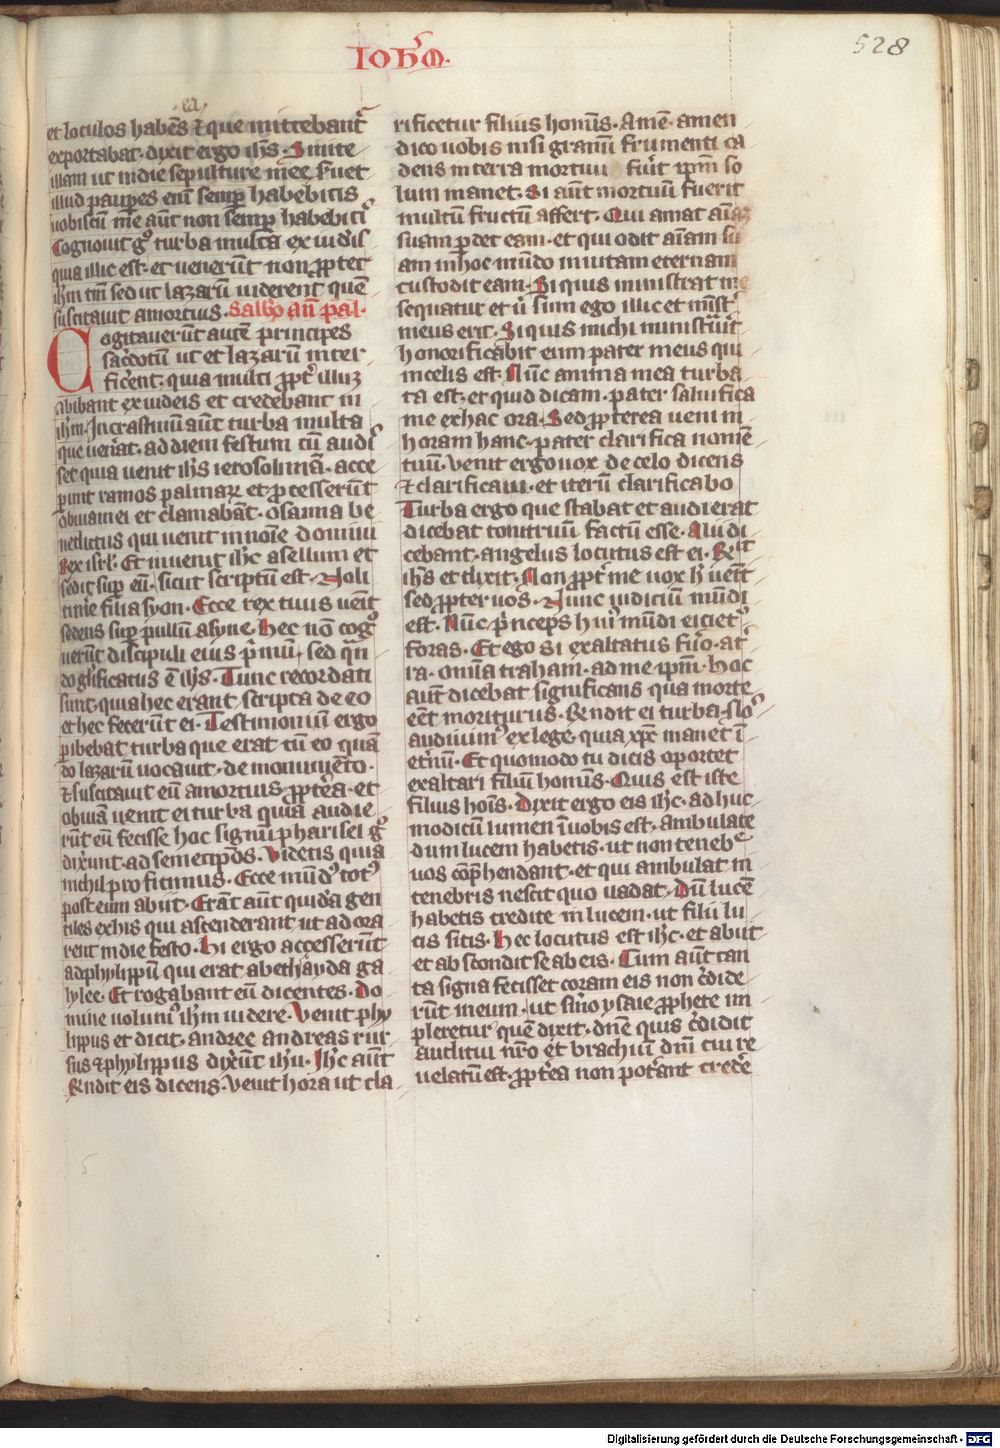 528
IOHM.
ea
et loculos habēs ⁊ que mittebantᷣ
exportabat. dixit ergo ih̄s. Sinite
illam ut in die sepulture mee s̄uet
illud paup̄es enī semp̄ habebitis
uobiscū me aūt non semp̄ habebitꝰ
Cognouit gͦ turba multa ex iudeīs
quia illic est. et uenerūt non ꝓpter
ih̄m tm̄ sed ut lazarū uiderent quē
suscitauit amortuis. Sabb̄o añ pal.
Cogitauerūt autē principes
sac̄dotū ut et lazarū inter
fic̄ent. quia multi ꝓpt̄ illuꝫ
abibant ex iudeis et credebant in
ih̄m. In crastinū aūt turba multa
que uen̄at. ad diem festum cū audiſ
set quia uenit ih̄s ierosolimā. acce
perunt ramos palmaꝝ et ꝓcesserūt
obuiam ei et clamabāt. osanna be
nedictus qui uenit in noīe domini
Rex isrl̄. Et inuenit ih̄c asellum et
sedit sup̄ eū. sicut scriptū est. Noli
tim̄e filia syon. Ecce rex tuus uēit
sedens sup̄ pullū asyne. Hec nō cogͦ
uerūt discipuli eius p̄mū. sed qn̄
do gl̄ificatus ē ih̄s. Tunc recordati
sunt. quia hec erant scripta de eo
et hec fecerūt ei. Testimoniū ergo
ꝑibebat turba que erat cū eo quā
do lazarū uocauit. de monumēto.
⁊ suscitauit eū amortuis. ꝓpt̄ea. et
obuiā uenit ei turba quia audie
rūt eū fecisse hoc signū. pharisei gͦ
dix̄unt. ad semetip̄os. Videtis quia
nichil proficimus. Ecce mūdꝰ totꝰ
post eum abiit. Erāt aūt quidā gen
tiles ex his qui ascenderant ut adora
rent in die festo. Hi ergo accesserūt
ad phylippū qui erat abethsayda ga
lylee. Et rogabant eū dicentes. Do
mine uolumꝰ ih̄m uidere. Venit phy
lippus et dicit. andree andreas rur
sus ⁊ phylippus dix̄ūt ih̄u. Ih̄c aūt
R̄ndit eis dicens. Venit hora ut cla
rificetur filius homīs. Amē amen
dico uobis nisi granū frumenti ca
dens in terra mortuū fūit ip̄m so
lum manet. Si aūt mortuū fuerit
multū fructū affert. Qui amat aīaꝫ
suam ꝑdet eam. et qui odit aīam su
am in hoc mūdo in uitam eternam
custodit eam. Si quis ministrat me
sequatur et ū sum ego illic et mīstᷣ
meus erit. Si quis michi ministūit
honorificabit eum pater meus qui
in celis est. Nūc anima mea turba
ta est. et quid dicam. pater saluifica
me ex hac ora. Sed ꝓpterea ueni in
horam hanc. pater clarifica nomē
tuū. Venit ergo uox de celo dicens
⁊ clarificaui. et iterū clarificabo
Turba ergo que stabat et audierat
dicebat tonitruū factū esse. Alii di
cebant. angelus locutus est ei. Rͤt
ih̄s et dixit. Non ꝓpt̄ me uox h̄ uēit
sed ꝓpter uos. Nunc iudiciū mūdi
est. Nūc p̄nceps huiꝰ mūdi eicietᷣ
foras. Et ego si exaltatus fūo. at̄
ra. omīa traham. ad me ip̄m. Hoc
aūt dicebat significans qua morte
eēt moriturus. R̄ndit ei turba. Nos
audiuimꝰ ex lege. quia xp̄c manet ī
et̄nū. Et quomodo tu dicis oportet
exaltari filiū homīs. Quis est iste
filius hoīs. Dixit ergo eis ih̄c. adhuc
modicū lumen ī uobis est. Ambulate
dum lucem habetis. ut non tenebͤ
uos cōp̄hendant. et qui ambulat in
tenebris nescit quo uadat. Dū lucē
habetis credite in lucem. ut filii lu
cis sitis. Hec locutus est ih̄c. et abiit
et abscondit se ab eis. Cum aūt tan
ta signa fecisset coram eis non c̄dide
rūt in eum. ut sīmo ysaie ꝓphete im
pleretur quē dixit. dn̄e quis c̄didit
auditui nr̄o et brachiū dn̄i cui re
uelatū est. ꝓpt̄ea non pot̄ant cred̄e
Digitalisierung gefördert durch die Deutsche Forschungsgemeinschaft - DFG